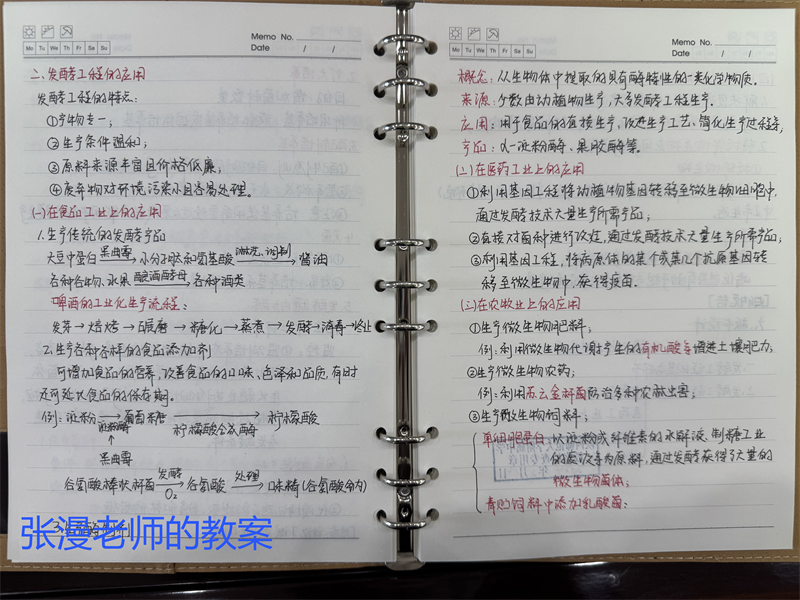 Memo No.
Mo Tu We Th Fr Sa Su
Date / /
二、发酵工程的应用
发酵工程的特点：
①产物专一；
②生产条件温和；
③原料来源丰富且价格低廉；
④废弃物对环境污染小且容易处理。
(一)在食品工业上的应用
1.生产传统的发酵产品
大豆中蛋白 黑曲霉 → 小分子肽和氨基酸 淋洗、调制 → 酱油
各种谷物、水果 酿酒酵母 → 各种酒类
啤酒的工业化生产流程：
发芽→焙烤→碾磨→糖化→蒸煮→发酵→消毒→终止
2.生产各种各样的食品添加剂
可增加食品的营养，改善食品的口味、色泽和品质，有时
还可延长食品的保存期。
例：淀粉 → 葡萄糖 → 柠檬酸
淀粉酶 柠檬酸合成酶
↑
黑曲霉
谷氨酸棒状杆菌 发酵 O₂ → 谷氨酸 处理 → 味精(谷氨酸钠)
张漫老师的教案
Memo No.
Mo Tu We Th Fr Sa Su
Date / /
概念：从生物体中提取的具有酶特性的一类化学物质。
来源：少数由动植物生产，大多发酵工程生产。
应用：用于食品的直接生产，改进生产工艺、简化生产过程等，
产品：α-淀粉酶、果胶酶等。
(二)在医药工业上的应用
①利用基因工程将动植物基因转移至微生物细胞中，
通过发酵技术大量生产所需产品；
②直接对菌种进行改造，通过发酵技术大量生产所需产品；
③利用基因工程，将病原体的某个或某几个抗原基因转
移至微生物中，获得疫苗.
(三)在农牧业上的应用
①生产微生物肥料；
例：利用微生物代谢产生的有机酸等增进土壤肥力；
②生产微生物农药；
例：利用苏云金杆菌防治多种农林虫害；
③生产微生物饲料；
单细胞蛋白：以淀粉或纤维素的水解液、制糖工业
的废液等为原料，通过发酵获得了大量的
微生物菌体；
青贮饲料中添加乳酸菌；